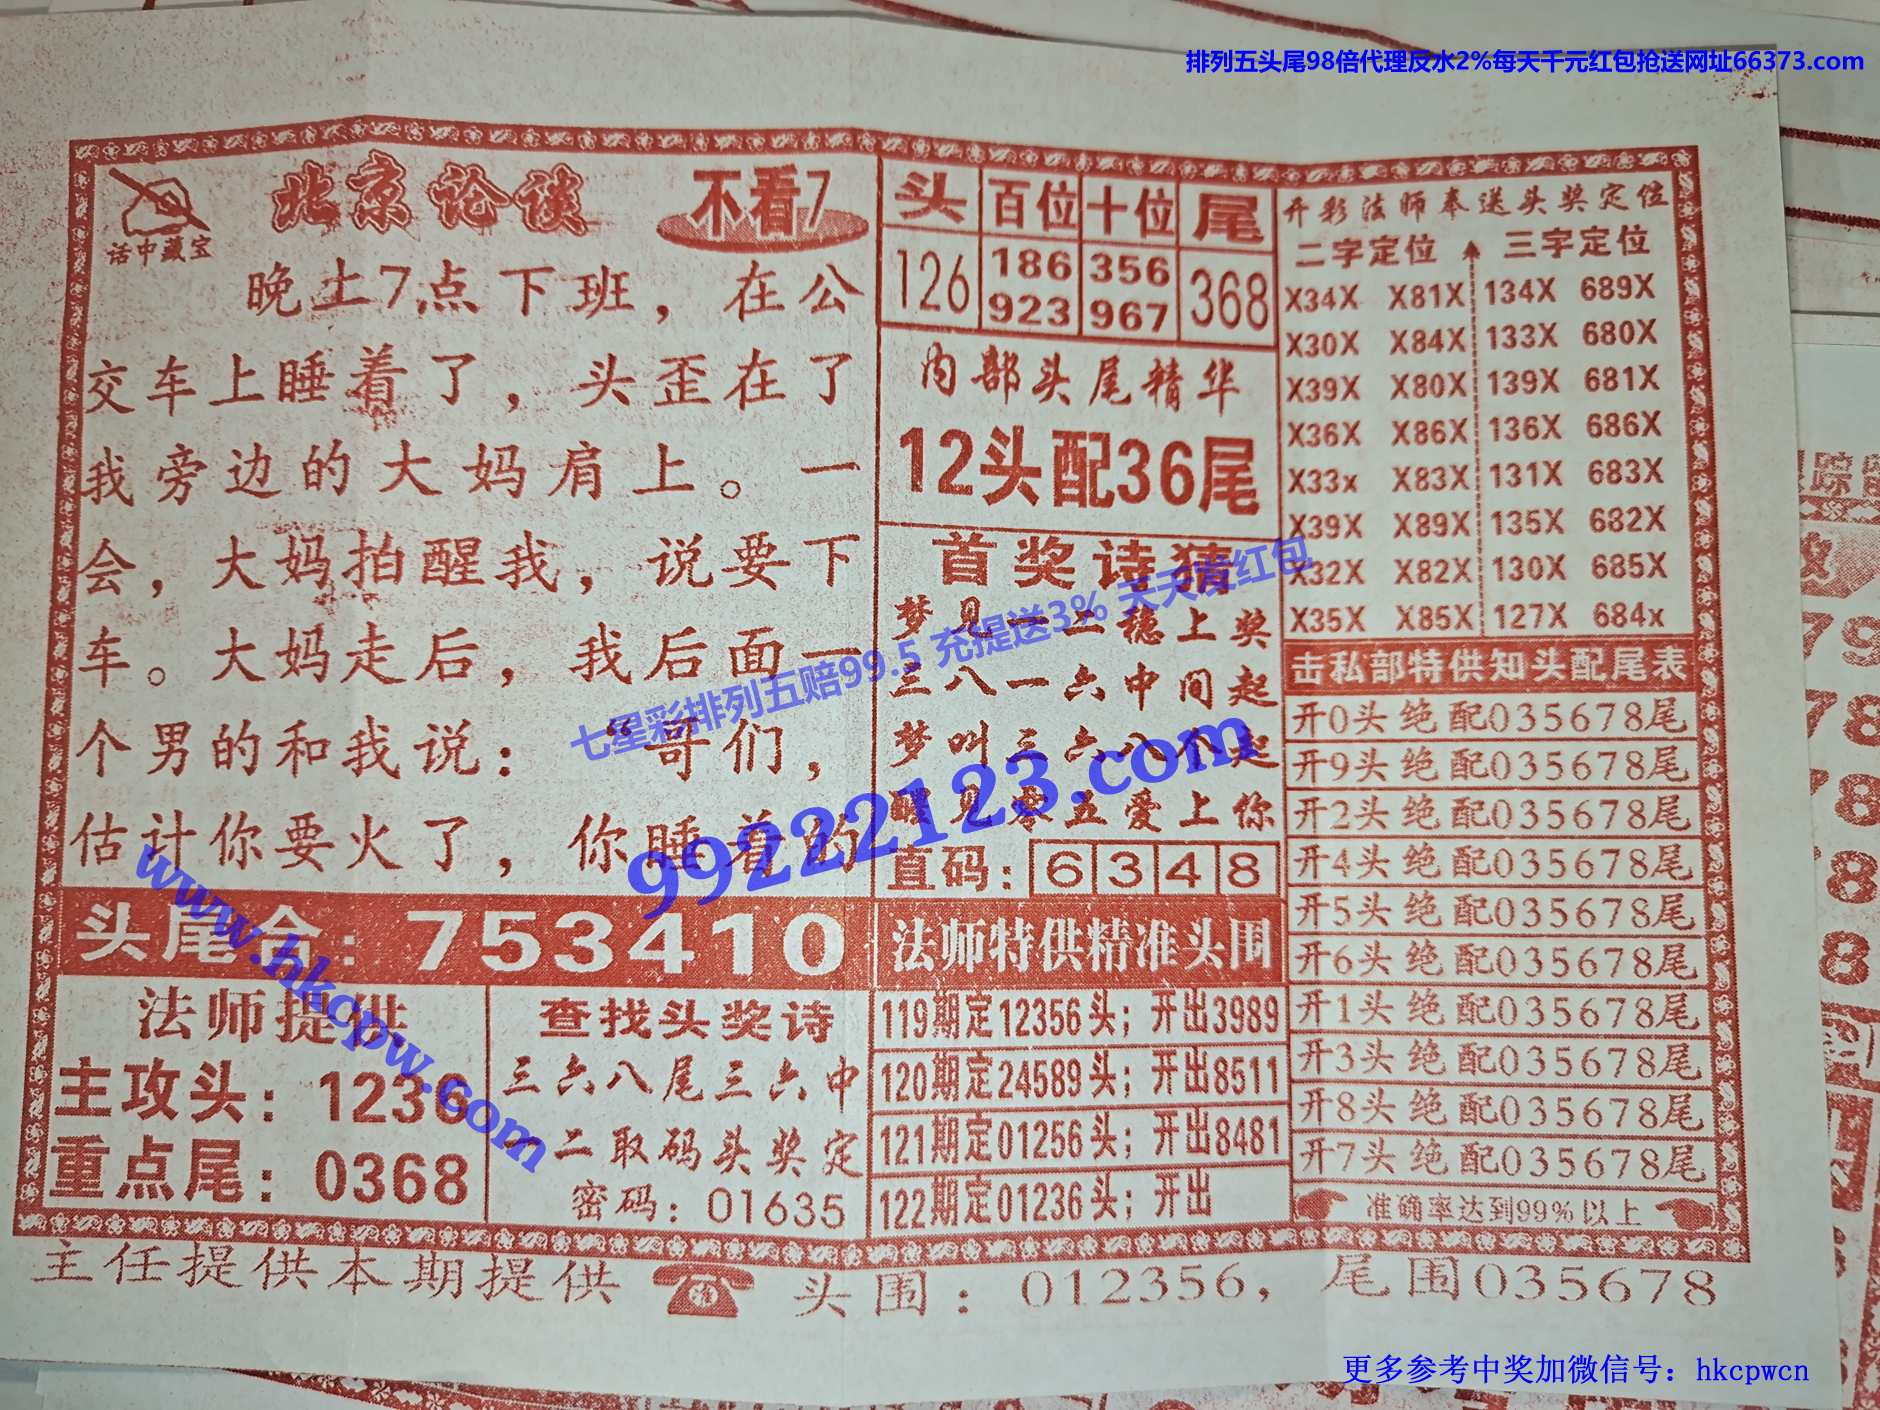 排列五头尾98倍代理反水2%每天千元红包抢送网址66373.com
话中藏宝
北京论谈
不看7
晚上7点下班，在公
交车上睡着了，头歪在了
我旁边的大妈肩上。一
会，大妈拍醒我，说要下
车。大妈走后，我后面一
个男的和我说：“哥们，
估计你要火了，你睡着的
头尾合：753410
法师提供
主攻头：1236
重点尾：0368
查找头奖诗
三六八尾三六中
一二取码头奖定
密码：01635
头 百位 十位 尾
126 186 356 368
923 967
内部头尾精华
12头配36尾
首奖诗猜
梦见一二穗上奖
三八一六中间起
梦叫三六八个起
醒见零五爱上你
直码：6 3 4 8
法师特供精准头围
119期定12356头；开出3989
120期定24589头；开出8511
121期定01256头；开出8481
122期定01236头；开出
开彩法师奉送头奖定位
二字定位 三字定位
X34X X81X 134X 689X
X30X X84X 133X 680X
X39X X80X 139X 681X
X36X X86X 136X 686X
X33x X83X 131X 683X
X39X X89X 135X 682X
X32X X82X 130X 685X
X35X X85X 127X 684x
击私部特供知头配尾表
开0头绝配035678尾
开9头绝配035678尾
开2头绝配035678尾
开4头绝配035678尾
开5头绝配035678尾
开6头绝配035678尾
开1头绝配035678尾
开3头绝配035678尾
开8头绝配035678尾
开7头绝配035678尾
准确率达到99%以上
主任提供本期提供 准 头围：012356，尾围035678
七星彩排列五赔99.5 充提送3% 天天发红包
99222123.com
www.hkcpw.com
更多参考中奖加微信号：hkcpwcn